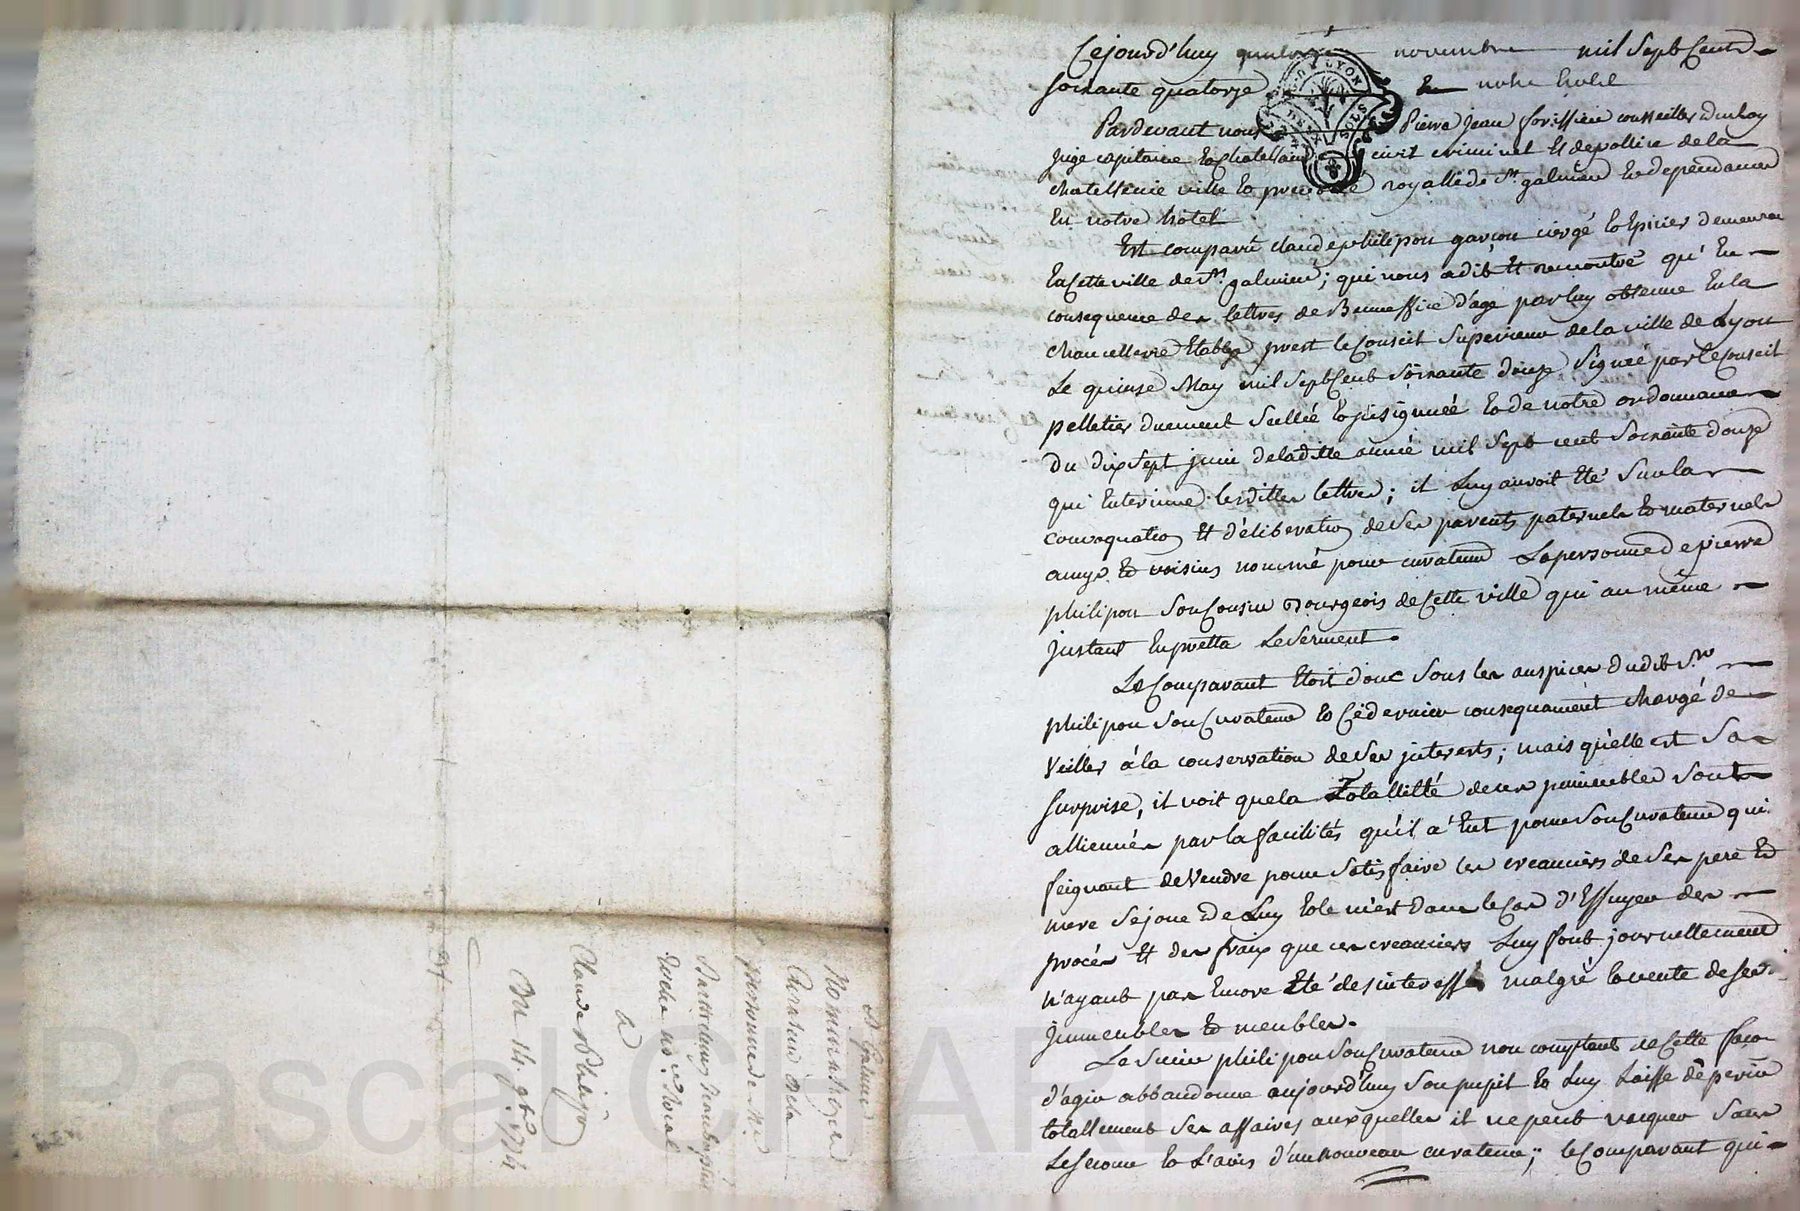 Cejourd'huy quatorze novembre mil Sept Cents
soixante quatorze En notre hotel
G.D. LYON
DEUX SOLS
Pardevant nous Pierre Jean forissier conseiller du Roy
juge capitaine Et chatellain civil criminel Et de pollice de la
chatellenie ville Et prevosté royalle de St. galmier Et dependance
En notre hôtel
Est comparû claude philipon garçon ciergé Et Epicier demeurant
En Cette ville de St. galmier; qui nous a dit Et remontré qu'En
consequence des lettres de Bennessice d'age par luy obtenue En la
chancellerie Etablye prest le Conseil Superieur de la ville de Lyon
Le quinse May mil Sept Cent Soixante douze Signée par le Conseil
pelletier duement Scellée Et jnsignuée Et de notre ordonnance
du dix Sept juin de laditte année mil Sept cent Soixante douze
qui Enterinne lesdittes lettres; il Luy auroit Eté Sur la
convoquation Et déliberation de Ses parents paternels Et maternels
amys Et voisins nommé pour curateur La personne de pierre
philipon Son Cousin Bourgeois de Cette ville qui au même
jnstant En pretta Le Serment.
Le Comparant Etoit donc Sous les auspices dudit Sr.
philipon Son Curateur Et Cé dernier consequament chargé de
Veiller à la conservation de Ses jnterests; mais qu'elle est Sa
Surprise, il voit que la Totallitté de ses jmmeubles Sont
alliennés par la facilités qu'il a Eut pour Son Curateur qui
feignant de Vendre pour Satisfaire les creanciers de Ses pere Et
mere Se joue de Luy Et le met dans le Cas d'Essuyer des
procés Et des fraix que ces creanciers Luy font journellement
n'ayant pas Encore Eté desinteressé malgré la vente de ses
jmmeubles Et meubles.
Le Sieur philipon Son Curateur non comptent de Cette façon
d'agir abbandonne aujourd'huy Son pupil Et Luy Laisse déperir
totallement Ses affaires auxquelles il ne peut vacquer Sans
Le Secours Et L'avis d'un nouveau curateur; le Comparant qui
St Galmier
Nomination de
Curateur de la
personne de Me
Barthelemy
Roche no.re Royal
à
Claude Philipon
Du 14. 9bre 1774
Pascal CHAREYRON